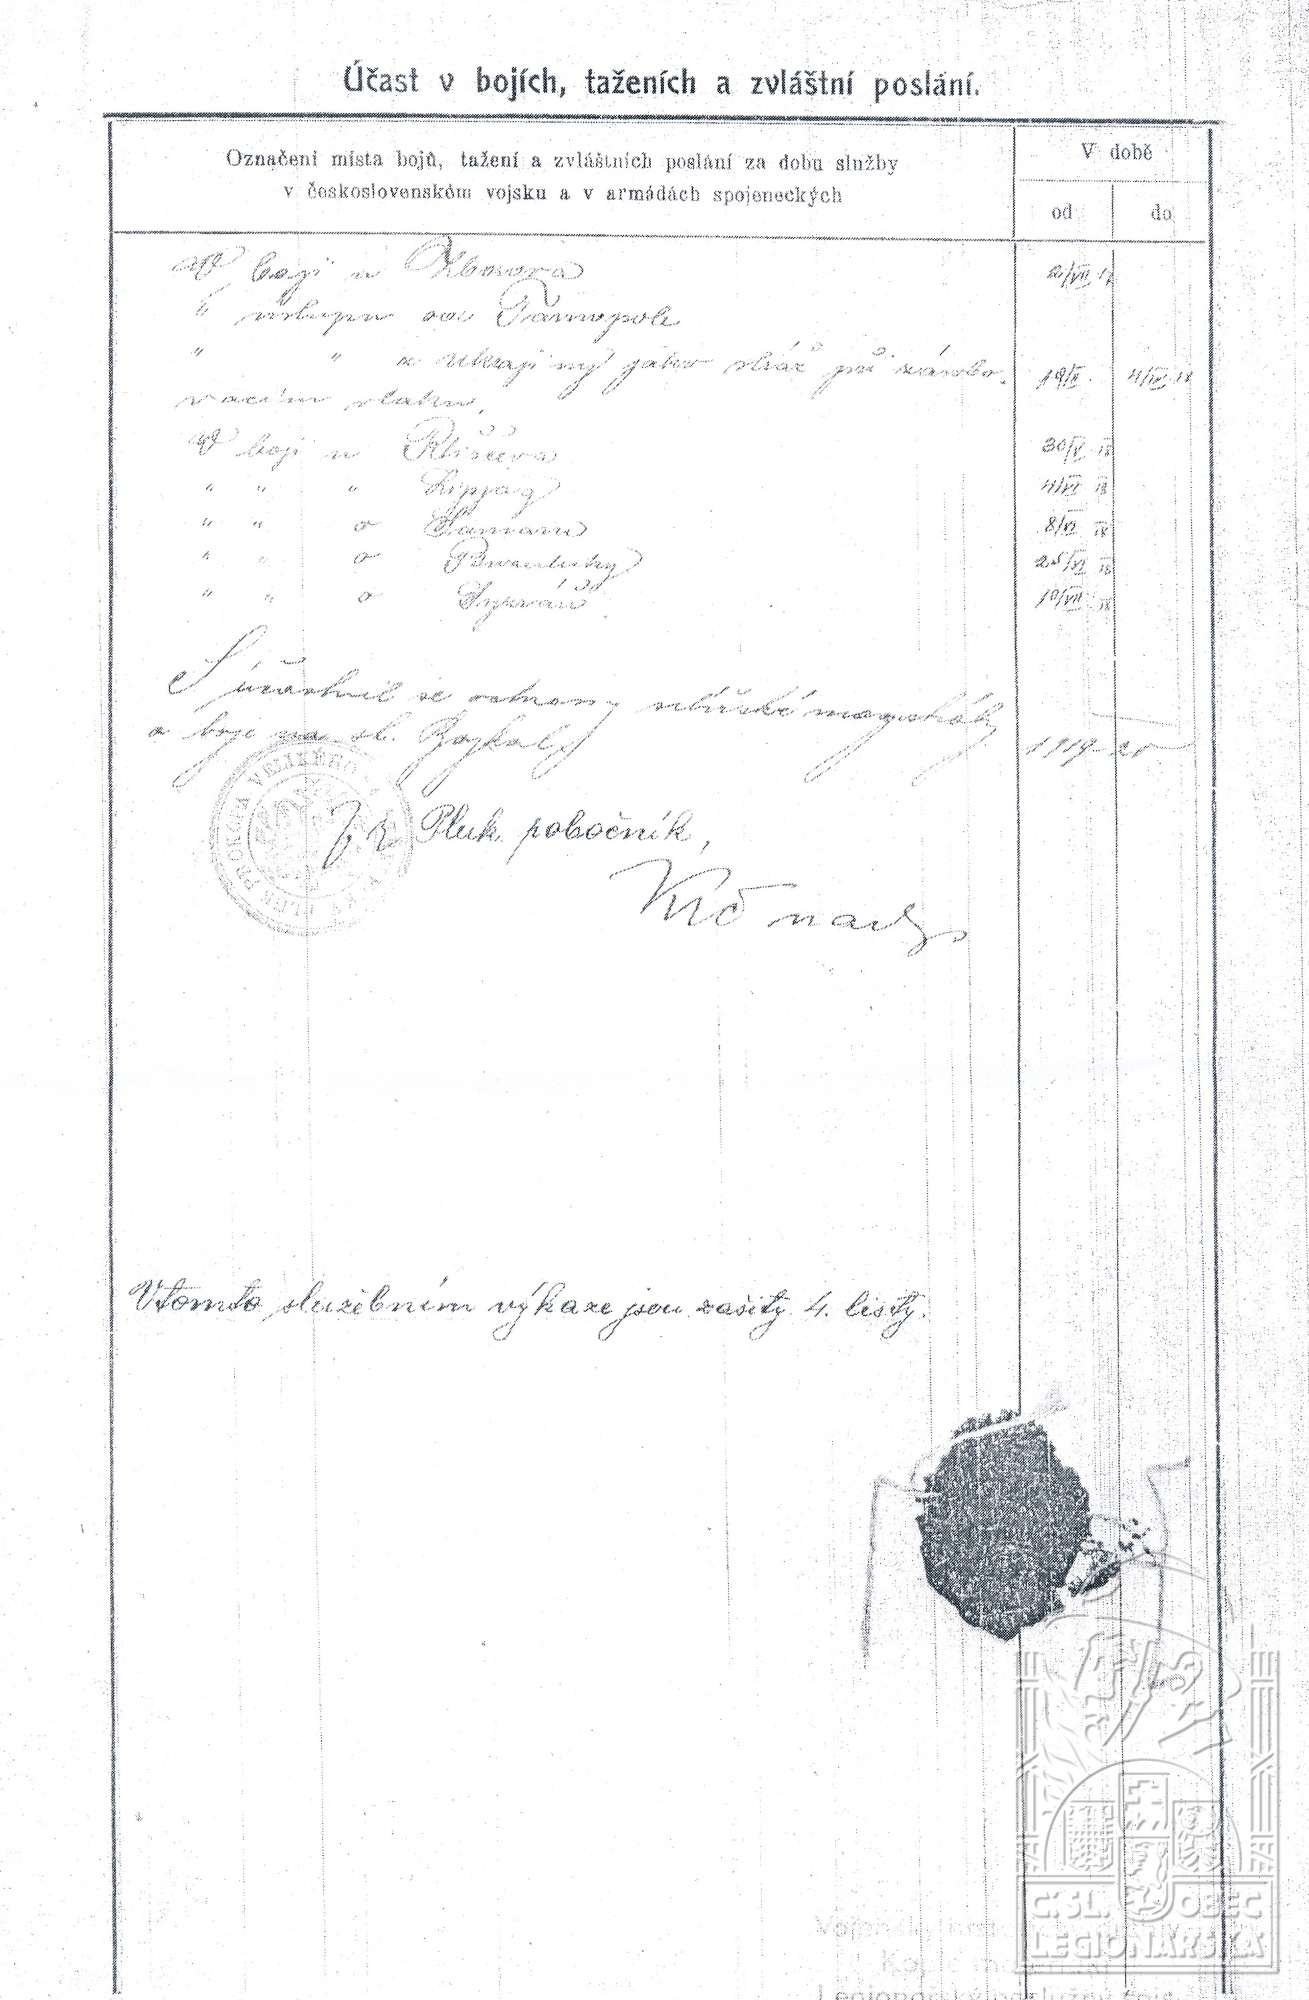 Účast v bojích, taženích a zvláštní poslání.
Označení místa bojů, tažení a zvláštních poslání za dobu služby
v československém vojsku a v armádách spojeneckých
V době
od
do
V boji u Zborova 2/VII 17
" ústupu od Tarnopole
" " z Ukrajiny jako stráž při zásobo- 19/II 4/III 18
vacím vlaku.
V boji u Rtiščeva 30/V 18
" " " Lipjag 4/VI 18
" " o Samaru 8/VI 18
" " o 25/VI 18
" " o Syzráň 10/VII 18
súčastnil se ochrany sibiřské magistrály
a boje na st. Bajkal 1919-20
Pluk. pobočník,
V tomto služebním výkaze jsou zašity 4. listy.
ČSL. OBEC
LEGIONÁŘSKÁ